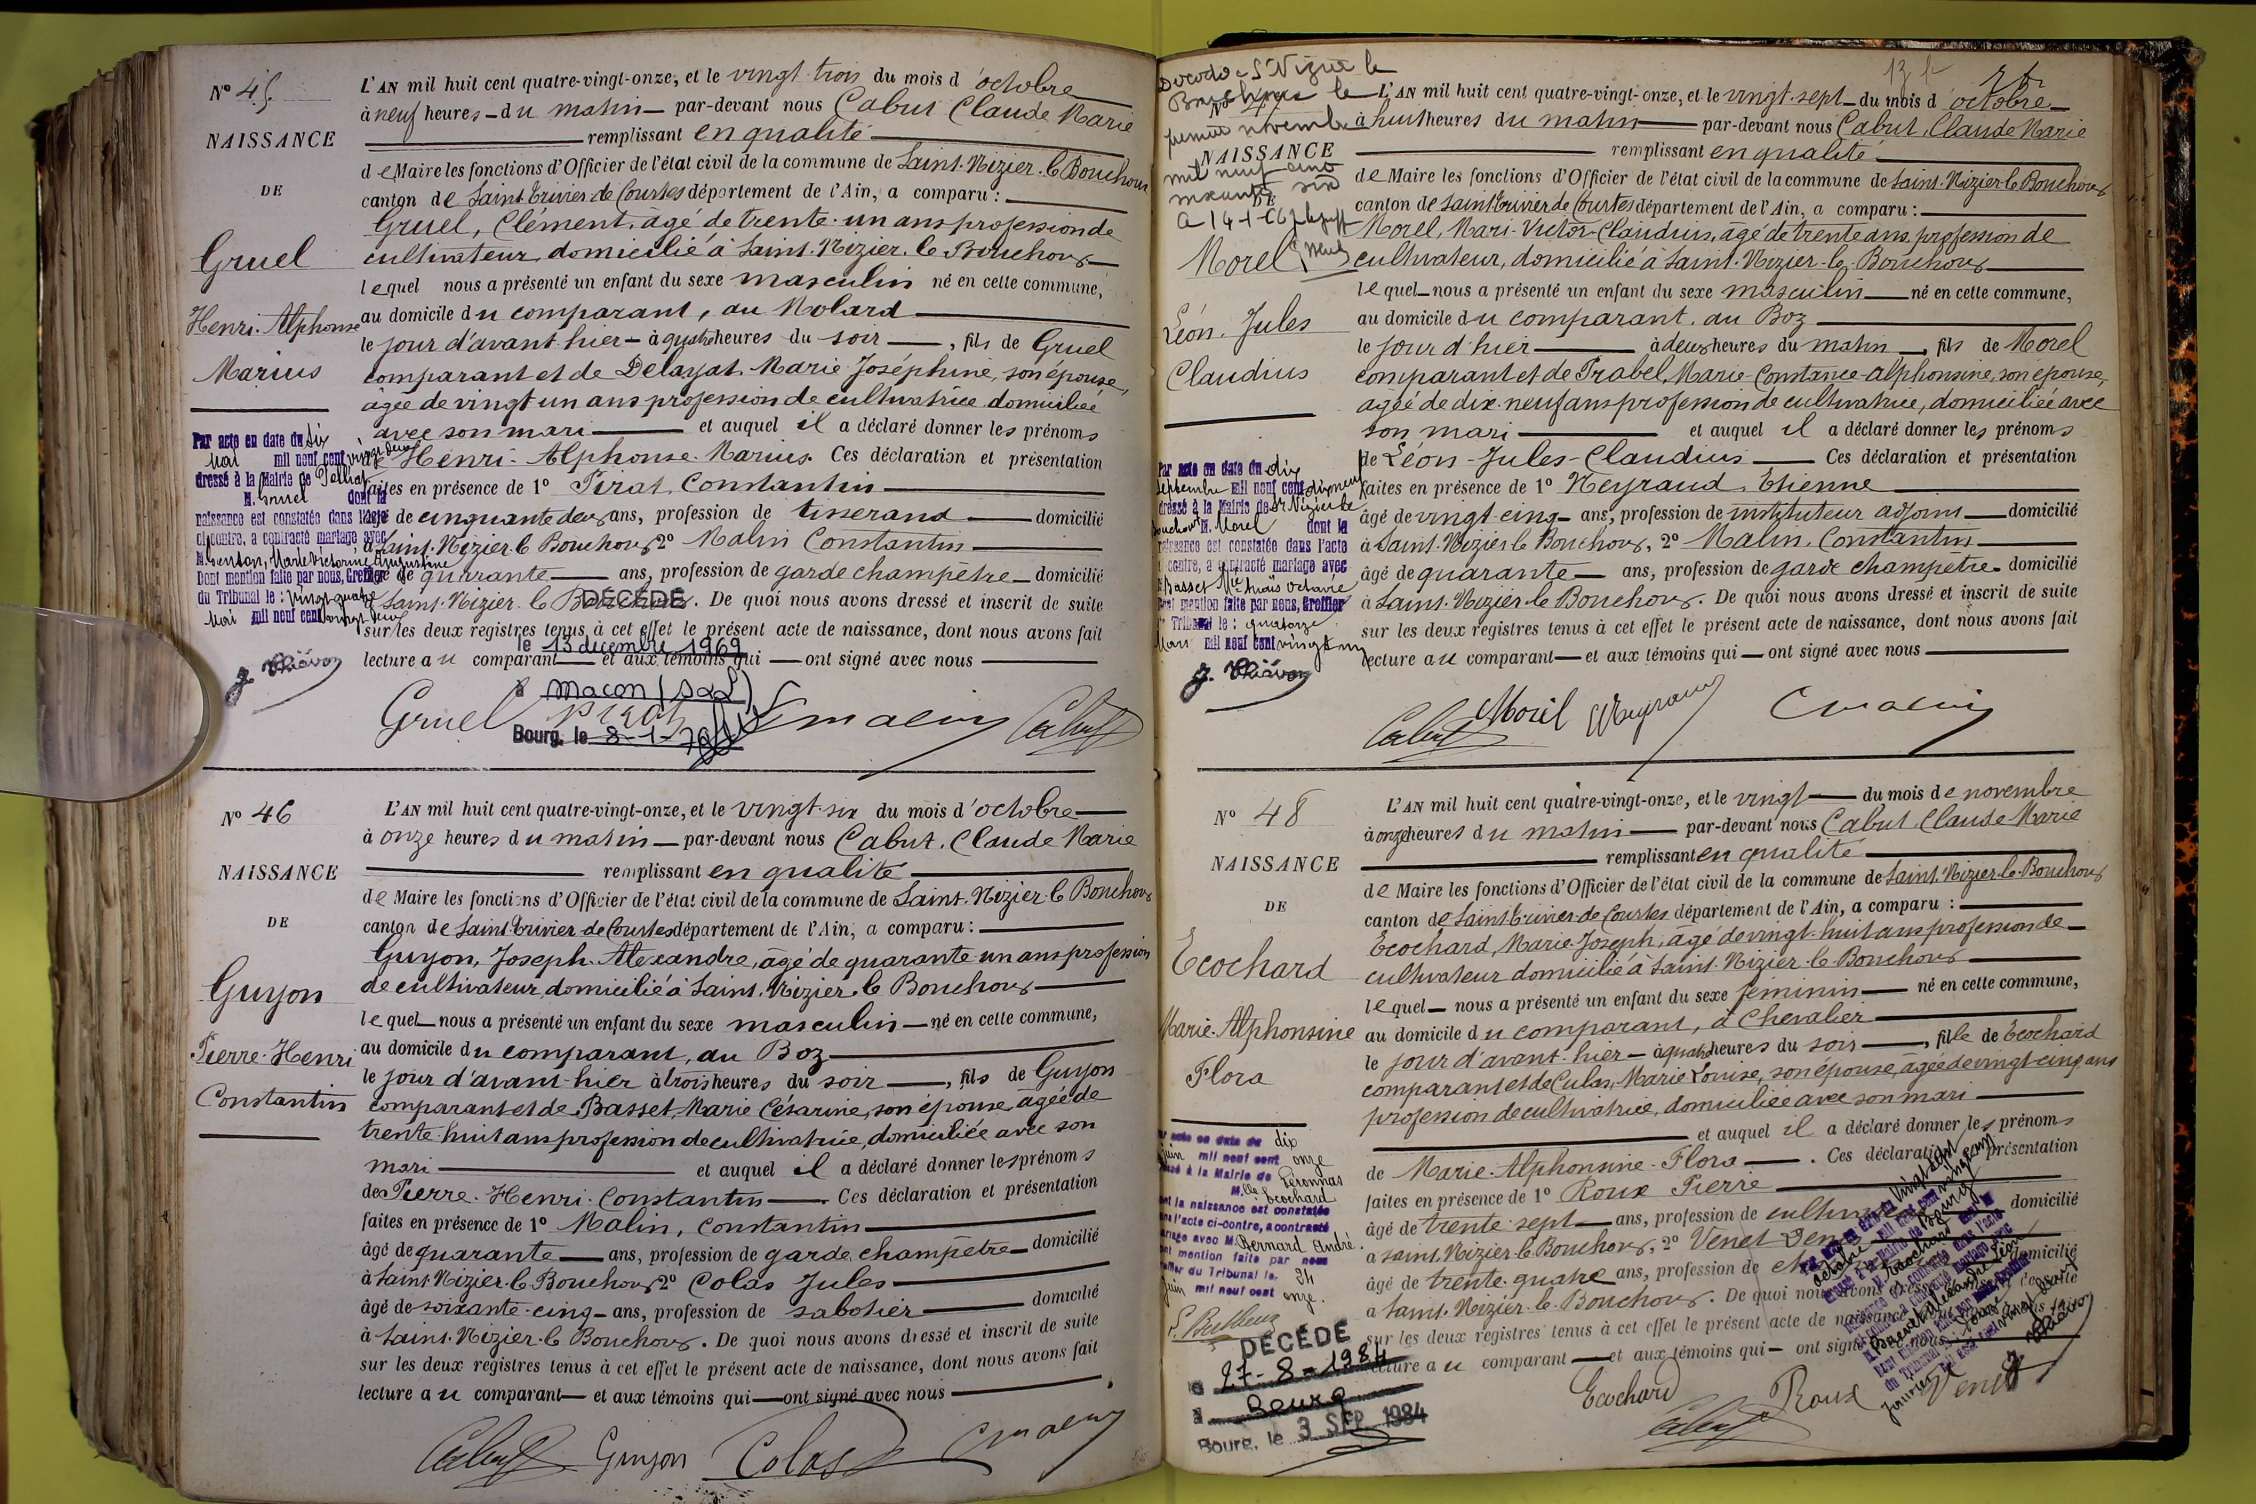 N° 45
NAISSANCE
DE
Gruel
Henri-Alphonse
Marius
L'AN mil huit cent quatre-vingt-onze, et le vingt-trois du mois d'octobre
à neuf heures du matin par-devant nous Cabut Claude Marie
remplissant en qualité
de Maire les fonctions d'Officier de l'état civil de la commune de Saint-Nizier-le-Bouchoux
canton de Saint-Trivier-de-Courtes département de l'Ain, a comparu :
Gruel, Clément, âgé de trente-un ans profession de
cultivateur domicilié à Saint-Nizier-le-Bouchoux
lequel nous a présenté un enfant du sexe masculin né en cette commune,
au domicile du comparant, au Molard
le jour d'avant hier à quatre heures du soir, fils de Gruel
comparant et de Delayat, Marie Joséphine, son épouse,
âgée de vingt un ans profession de cultivatrice domiciliée
avec son mari et auquel il a déclaré donner les prénoms
de Henri-Alphonse-Marius. Ces déclaration et présentation
faites en présence de 1° Pirat, Constantin
âgé de cinquante deux ans, profession de tisserand domicilié
à Saint-Nizier-le-Bouchoux 2° Malin Constantin
âgé de quarante ans, profession de garde champêtre domicilié
à Saint-Nizier-le-Bouchoux. De quoi nous avons dressé et inscrit de suite
sur les deux registres tenus à cet effet le présent acte de naissance, dont nous avons fait
lecture au comparant et aux témoins qui ont signé avec nous
Par acte en date du six
Mai mil neuf cent vingt deux
dressé à la Mairie de
M. Gruel dont la
naissance est constatée dans l'acte
ci-contre, a contracté mariage avec
M. Marie Victorine Augustine
Dont mention faite par nous, Greffier
du Tribunal le : vingt quatre
Mai mil neuf cent vingt deux
DÉCÉDÉ
le 13 décembre 1969
à Macon (S&L)
Bourg, le 8-1-70
Gruel Pirat C malin Cabut
N° 46
NAISSANCE
DE
Guyon
Pierre-Henri
Constantin
L'AN mil huit cent quatre-vingt-onze, et le vingt-six du mois d'octobre
à onze heures du matin par-devant nous Cabut, Claude Marie
remplissant en qualité
de Maire les fonctions d'Officier de l'état civil de la commune de Saint-Nizier-le-Bouchoux
canton de Saint-Trivier-de-Courtes département de l'Ain, a comparu :
Guyon, Joseph-Alexandre, âgé de quarante-un ans profession
de cultivateur, domicilié à Saint-Nizier-le-Bouchoux
lequel nous a présenté un enfant du sexe masculin né en cette commune,
au domicile du comparant, au Boz
le jour d'avant-hier à trois heures du soir, fils de Guyon
comparant et de Basset, Marie Césarine, son épouse, âgée de
trente-huit ans profession de cultivatrice, domiciliée avec son
mari et auquel il a déclaré donner les prénoms
de Pierre-Henri-Constantin. Ces déclaration et présentation
faites en présence de 1° Malin, Constantin
âgé de quarante ans, profession de garde champêtre domicilié
à Saint-Nizier-le-Bouchoux 2° Colas Jules
âgé de soixante-cinq ans, profession de sabotier domicilié
à Saint-Nizier-le-Bouchoux. De quoi nous avons dressé et inscrit de suite
sur les deux registres tenus à cet effet le présent acte de naissance, dont nous avons fait
lecture au comparant et aux témoins qui ont signé avec nous
Cabut Guyon Colas C malin
Décédé à St Nizier le
Bouchoux le
N° 47
premier novembre
mil neuf cent
soixante six
NAISSANCE
DE
Morel
Léon-Jules
Claudius
L'AN mil huit cent quatre-vingt-onze, et le vingt-sept du mois d'octobre
à huit heures du matin par-devant nous Cabut, Claude Marie
remplissant en qualité
de Maire les fonctions d'Officier de l'état civil de la commune de Saint-Nizier-le-Bouchoux
canton de Saint-Trivier-de-Courtes département de l'Ain, a comparu :
Morel, Mari-Victor-Claudius, âgé de trente ans, profession de
cultivateur, domicilié à Saint-Nizier-le-Bouchoux
lequel nous a présenté un enfant du sexe masculin né en cette commune,
au domicile du comparant, au Boz
le jour d'hier à deux heures du matin, fils de Morel
comparant et de Prabel, Marie-Constance-Alphonsine, son épouse,
âgée de dix-neuf ans profession de cultivatrice, domiciliée avec
son mari et auquel il a déclaré donner les prénoms
de Léon-Jules-Claudius. Ces déclaration et présentation
faites en présence de 1° Neyraud, Etienne
âgé de vingt-cinq ans, profession de instituteur adjoint domicilié
à Saint-Nizier-le-Bouchoux, 2° Malin, Constantin
âgé de quarante ans, profession de garde champêtre domicilié
à Saint-Nizier-le-Bouchoux. De quoi nous avons dressé et inscrit de suite
sur les deux registres tenus à cet effet le présent acte de naissance, dont nous avons fait
lecture au comparant et aux témoins qui ont signé avec nous
Par acte en date du dix
Septembre mil neuf cent dix neuf
dressé à la Mairie de St Nizier le
Bouchoux M. Morel dont la
naissance est constatée dans l'acte
ci-contre, a contracté mariage avec
Basset
Dont mention faite par nous, Greffier
du Tribunal le : quatorze
Mars mil neuf cent vingt un
Cabut Morel Neyraud C malin
N° 48
NAISSANCE
DE
Ecochard
Marie-Alphonsine
Flora
L'AN mil huit cent quatre-vingt-onze, et le vingt du mois de novembre
à onze heures du matin par-devant nous Cabut, Claude Marie
remplissant en qualité
de Maire les fonctions d'Officier de l'état civil de la commune de Saint-Nizier-le-Bouchoux
canton de Saint-Trivier-de-Courtes département de l'Ain, a comparu :
Ecochard, Marie-Joseph, âgé de vingt-huit ans profession de
cultivateur domicilié à Saint-Nizier-le-Bouchoux
lequel nous a présenté un enfant du sexe féminin né en cette commune,
au domicile du comparant, à Chevalier
le jour d'avant-hier à quatre heures du soir, fille de Ecochard
comparant et de Culas, Marie Louise, son épouse, âgée de vingt-cinq ans
profession de cultivatrice, domiciliée avec son mari
et auquel il a déclaré donner les prénoms
de Marie-Alphonsine-Flora. Ces déclaration et présentation
faites en présence de 1° Roux Pierre
âgé de trente-sept ans, profession de domicilié
à Saint-Nizier-le-Bouchoux, 2° Venet
âgé de trente-quatre ans, profession de domicilié
à Saint-Nizier-le-Bouchoux. De quoi nous avons dressé et inscrit de suite
sur les deux registres tenus à cet effet le présent acte de naissance, dont nous avons fait
lecture au comparant et aux témoins qui ont signé avec nous
Par acte en date du dix
Juin mil neuf cent onze
dressé à la Mairie de Péronnas
Mlle Ecochard
dont la naissance est constatée
dans l'acte ci-contre, a contracté
mariage avec M. Bernard André.
Dont mention faite par nous
Greffier du Tribunal le 24
Juin mil neuf cent onze.
DÉCÉDÉ
le 27-8-1984
à Bourg
Bourg, le 3 SEP 1984
Ecochard Cabut Roux Venet